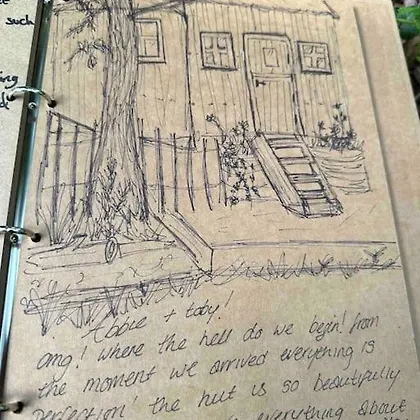 such
Abbie + toby!
omg! where the hell do we begin! from
the moment we arrived everything is
perfection! the hut is so beautifully
everything about